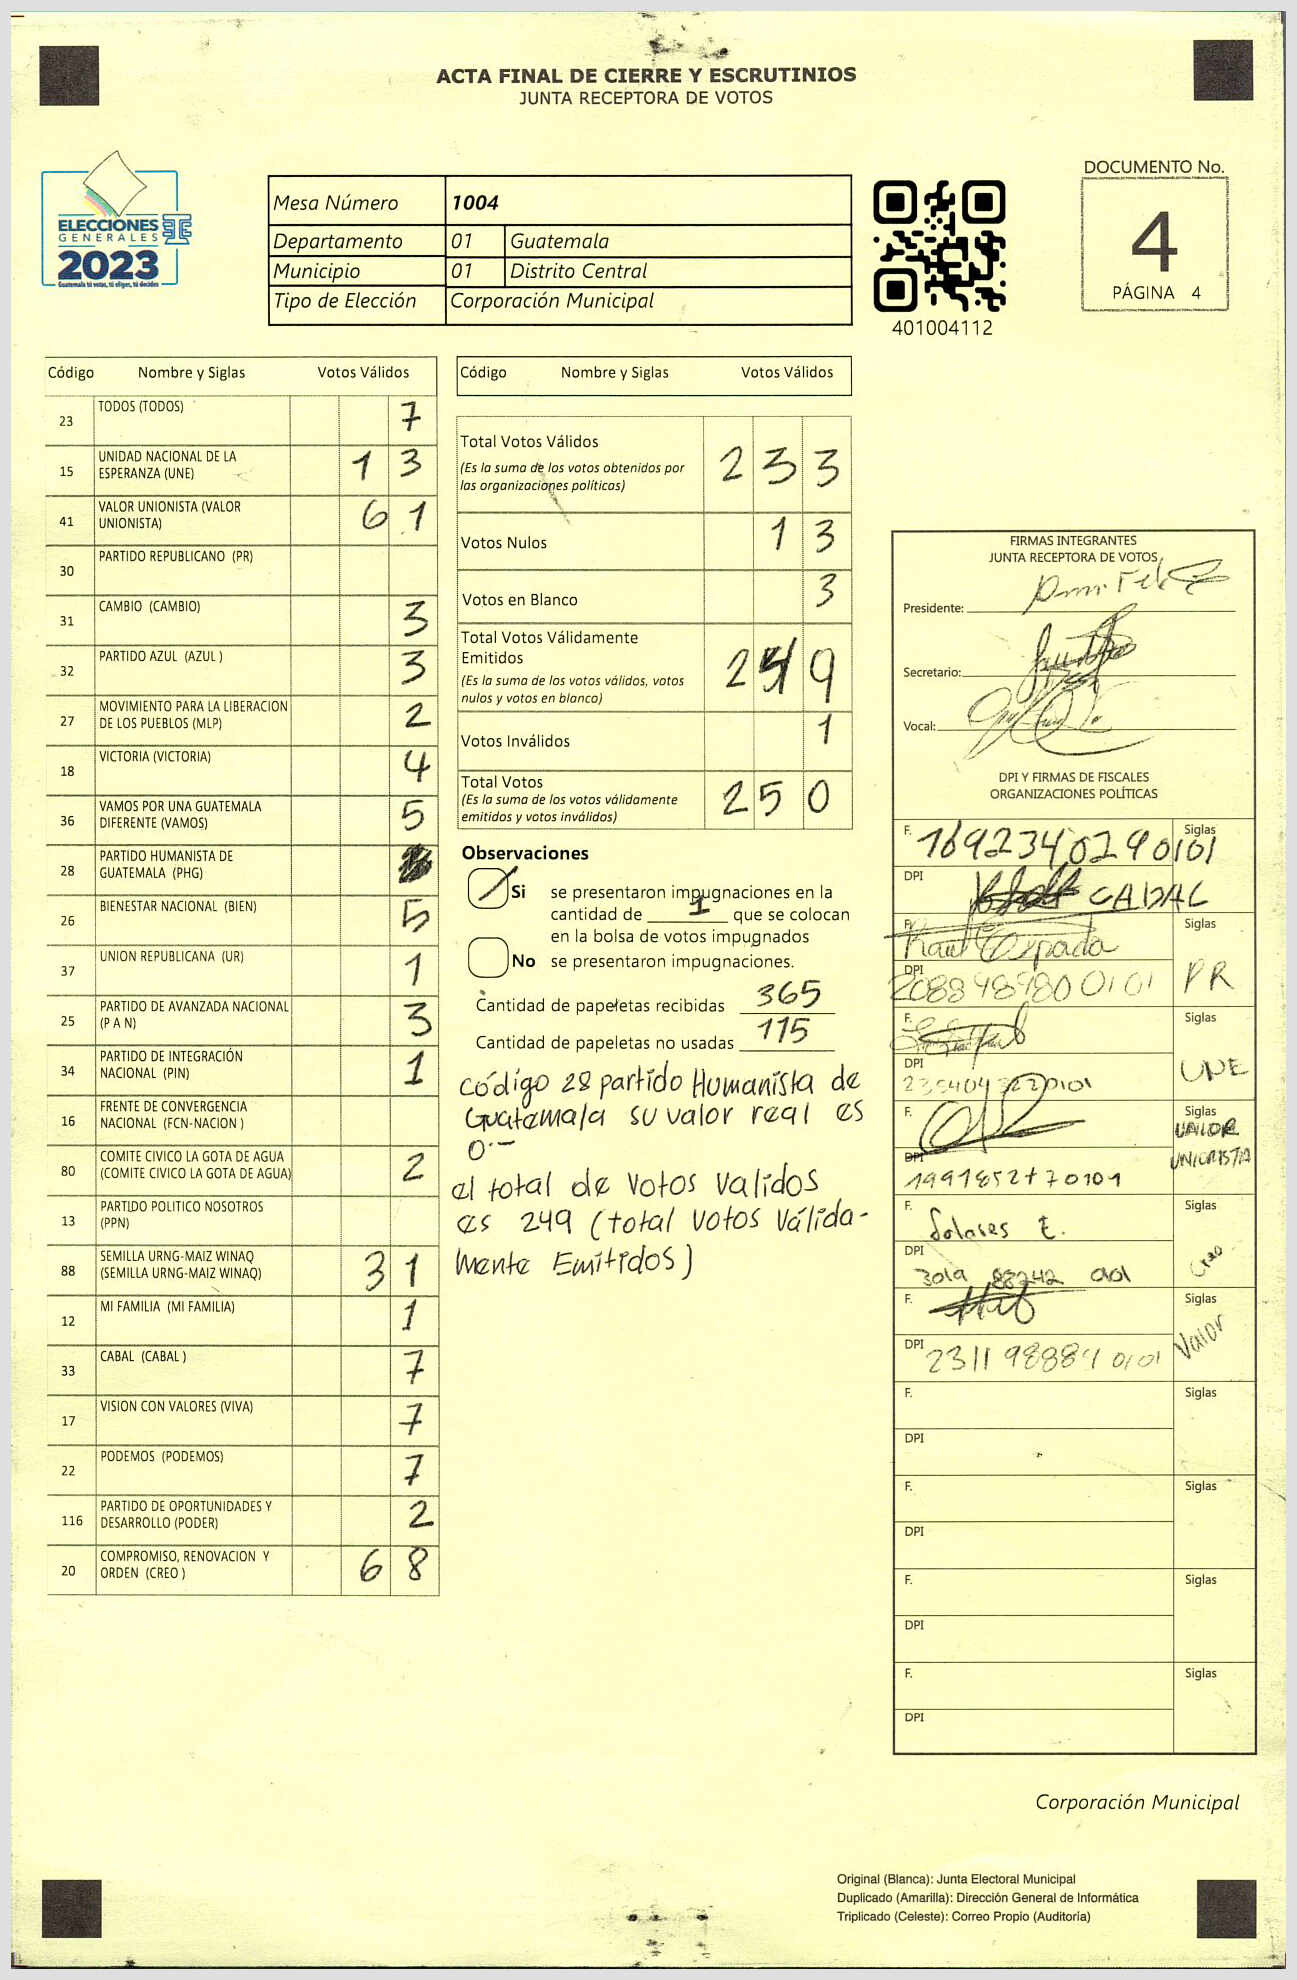 ACTA FINAL DE CIERRE Y ESCRUTINIOS
JUNTA RECEPTORA DE VOTOS
ELECCIONES
GENERALES
2023
Guatemala tú votas, tú eliges, tú decides
Mesa Número 1004
Departamento 01 Guatemala
Municipio 01 Distrito Central
Tipo de Elección Corporación Municipal
401004112
DOCUMENTO No.
4
PÁGINA 4
Código Nombre y Siglas Votos Válidos
23 TODOS (TODOS) 7
15 UNIDAD NACIONAL DE LA
ESPERANZA (UNE) 13
41 VALOR UNIONISTA (VALOR
UNIONISTA) 61
30 PARTIDO REPUBLICANO (PR)
31 CAMBIO (CAMBIO) 3
32 PARTIDO AZUL (AZUL ) 3
27 MOVIMIENTO PARA LA LIBERACION
DE LOS PUEBLOS (MLP) 2
18 VICTORIA (VICTORIA) 4
36 VAMOS POR UNA GUATEMALA
DIFERENTE (VAMOS) 5
28 PARTIDO HUMANISTA DE
GUATEMALA (PHG)
26 BIENESTAR NACIONAL (BIEN) 5
37 UNION REPUBLICANA (UR) 1
25 PARTIDO DE AVANZADA NACIONAL
(P A N) 3
34 PARTIDO DE INTEGRACIÓN
NACIONAL (PIN) 1
16 FRENTE DE CONVERGENCIA
NACIONAL (FCN-NACION )
80 COMITE CIVICO LA GOTA DE AGUA
(COMITE CIVICO LA GOTA DE AGUA) 2
13 PARTIDO POLITICO NOSOTROS
(PPN)
88 SEMILLA URNG-MAIZ WINAQ
(SEMILLA URNG-MAIZ WINAQ) 31
12 MI FAMILIA (MI FAMILIA) 1
33 CABAL (CABAL ) 7
17 VISION CON VALORES (VIVA) 7
22 PODEMOS (PODEMOS) 7
116 PARTIDO DE OPORTUNIDADES Y
DESARROLLO (PODER) 2
20 COMPROMISO, RENOVACION Y
ORDEN (CREO ) 68
Código Nombre y Siglas Votos Válidos
Total Votos Válidos 233
(Es la suma de los votos obtenidos por
las organizaciones políticas)
Votos Nulos 13
Votos en Blanco 3
Total Votos Válidamente
Emitidos 249
(Es la suma de los votos válidos, votos
nulos y votos en blanco)
Votos Inválidos 1
Total Votos 250
(Es la suma de los votos válidamente
emitidos y votos inválidos)
Observaciones
Si se presentaron impugnaciones en la
cantidad de 1 que se colocan
en la bolsa de votos impugnados
No se presentaron impugnaciones.
Cantidad de papeletas recibidas 365
Cantidad de papeletas no usadas 115
código 28 partido Humanista de
Guatemala su valor real es
0.-
el total de votos validos
es 249 (total votos válida-
mente Emitidos)
FIRMAS INTEGRANTES
JUNTA RECEPTORA DE VOTOS
Presidente:
Secretario:
Vocal:
DPI Y FIRMAS DE FISCALES
ORGANIZACIONES POLÍTICAS
F. 1692340290101 Siglas
DPI
F. Siglas
DPI PR
F. Siglas
DPI UNE
F. Siglas
VALOR
UNIONISTA
DPI
F. Solares E. Siglas
DPI Creo
F. Siglas
DPI Valor
F. Siglas
DPI
F. Siglas
DPI
F. Siglas
DPI
F. Siglas
DPI
Corporación Municipal
Original (Blanca): Junta Electoral Municipal
Duplicado (Amarilla): Dirección General de Informática
Triplicado (Celeste): Correo Propio (Auditoría)